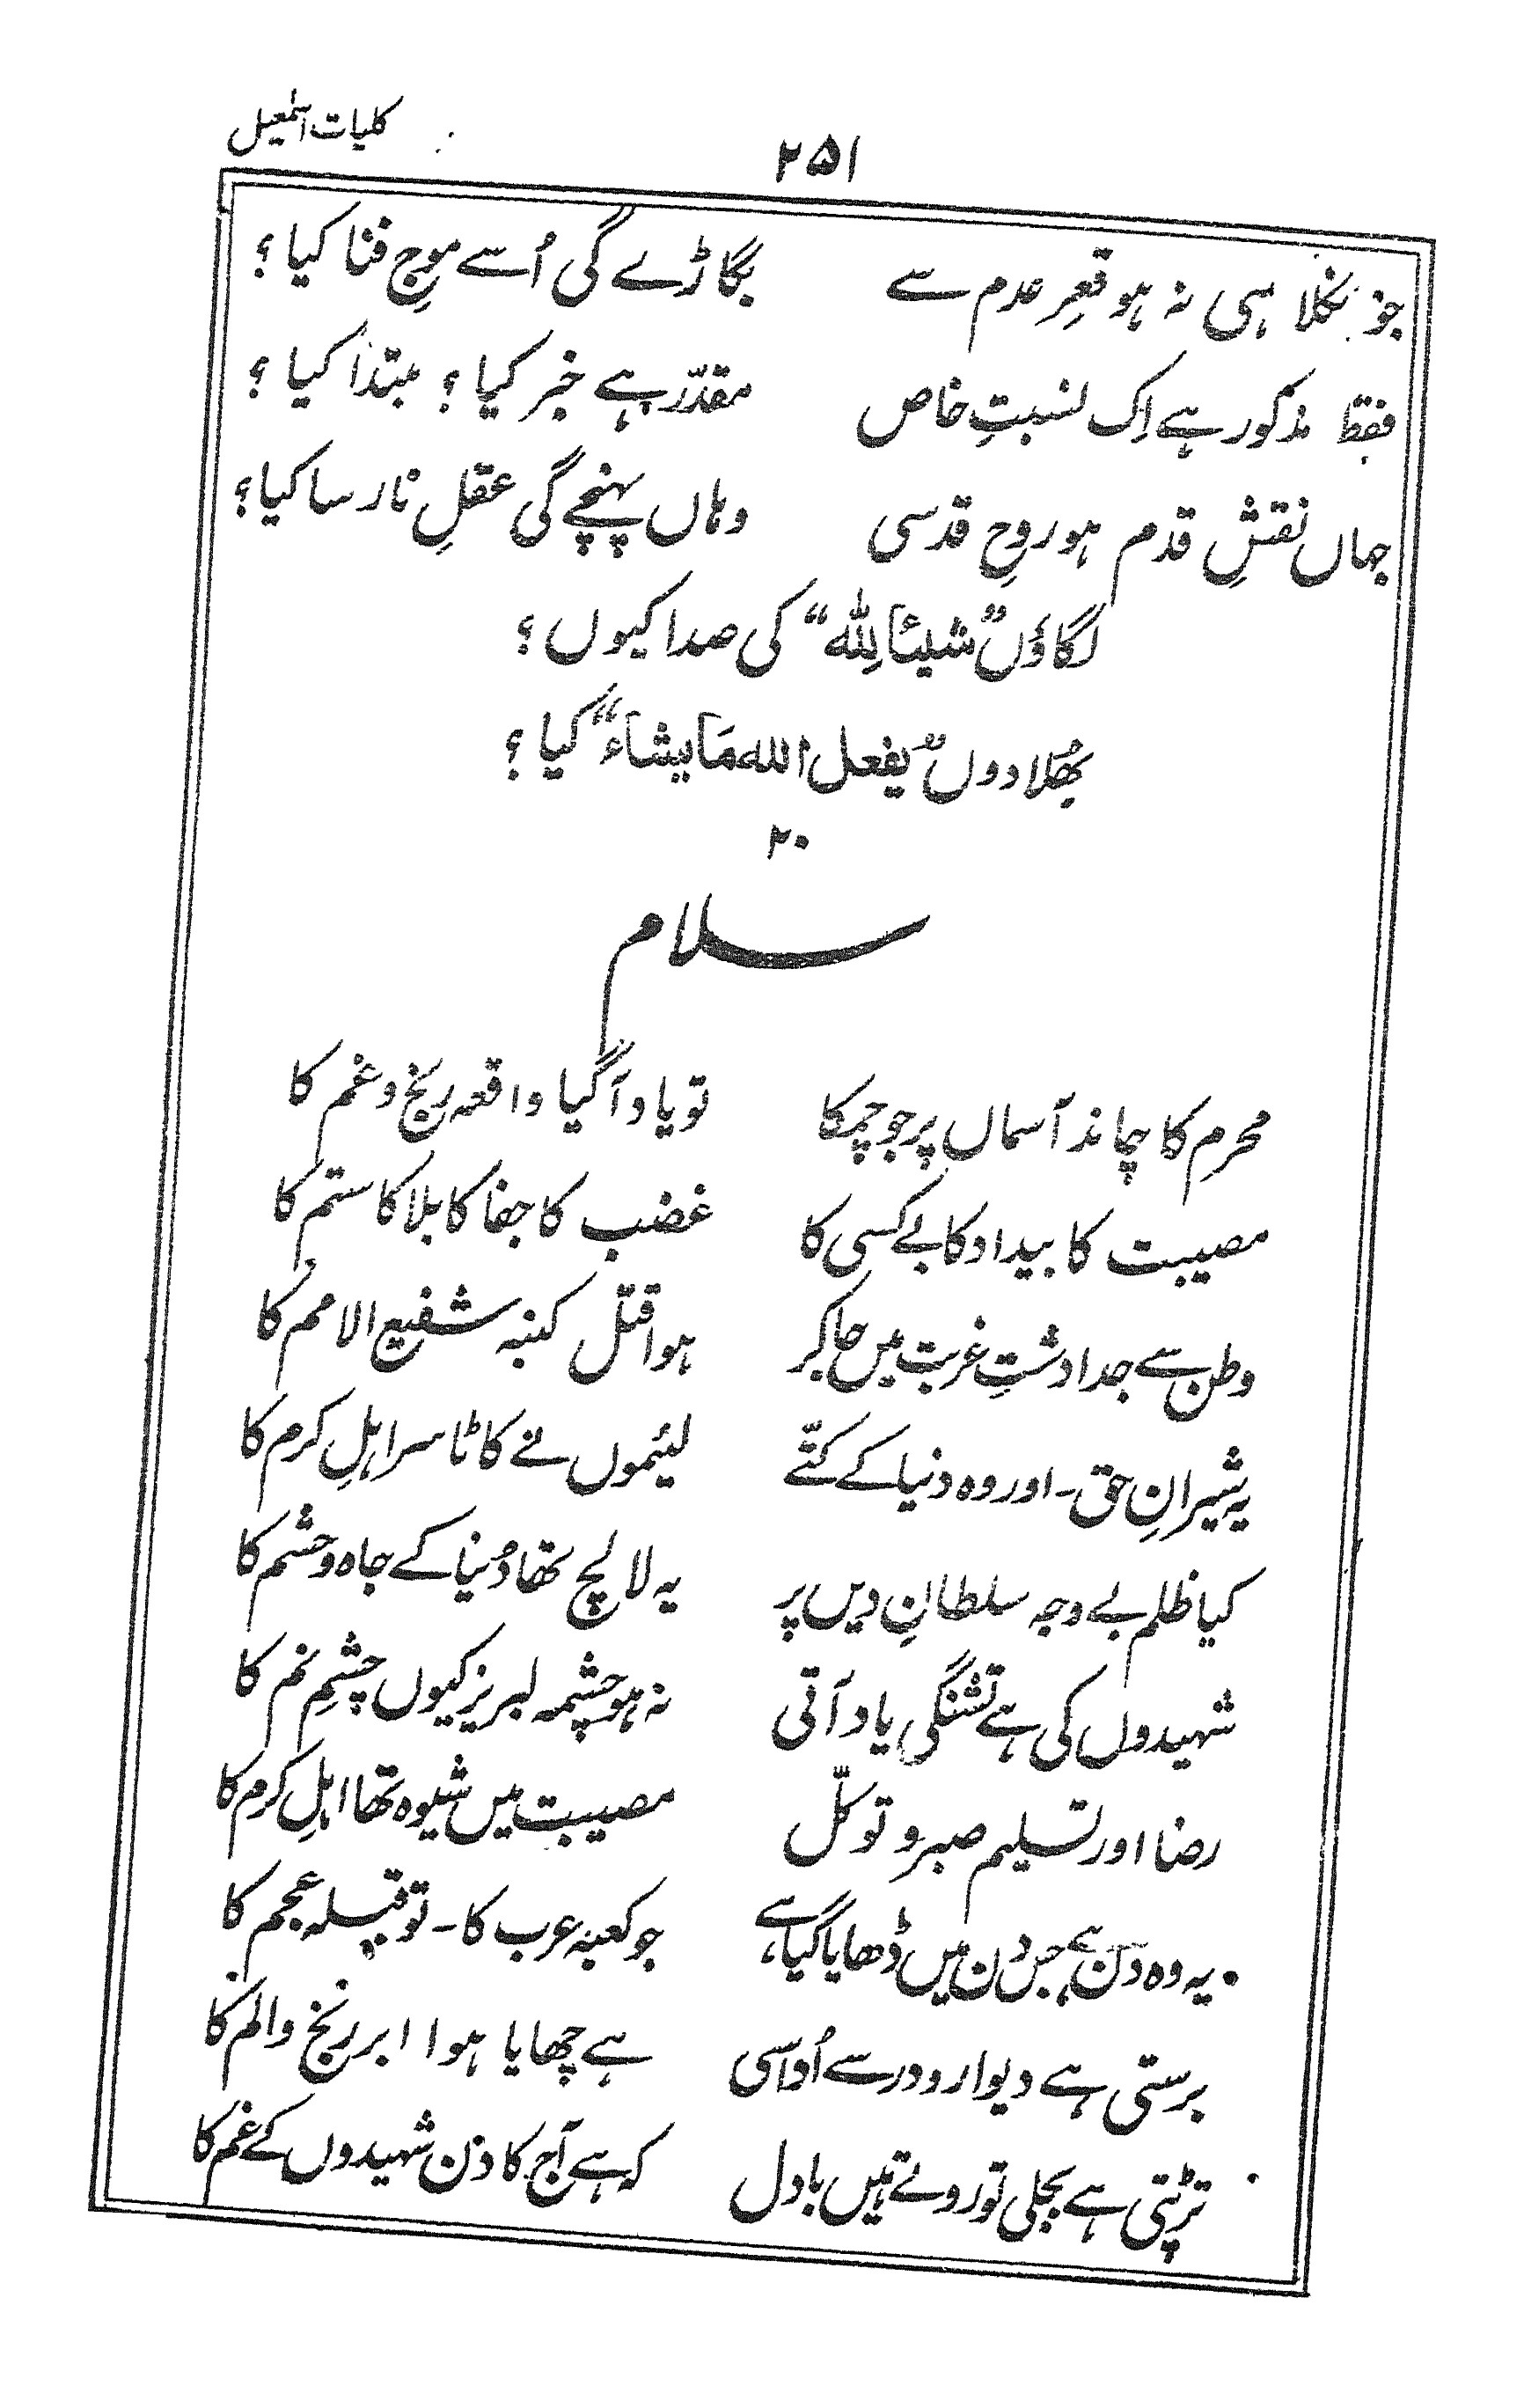 ۲۵۱ کلیات اسمٰعیل
جو نکلا ہی نہ ہو قعرِ عدم سے بگاڑے گی اُسے موجِ فنا کیا؟
فقط مذکور ہے اِک نسبتِ خاص مقدّر ہے خبر کیا؟ مبتدا کیا؟
جہاں نقشِ قدم ہو روحِ قدسی وہاں پہنچے گی عقلِ نارسا کیا؟
لگاؤں "شیئاً لِلّٰہ" کی صدا کیوں؟
بھُلا دوں "یفعل اللہ مَا یشاء" کیا؟
۲۰
سلام
محرم کا چاند آسماں پر جو چمکا تو یاد آگیا واقعہ رنج و غم کا
مصیبت کا بیداد کا بے کسی کا غضب کا جفا کا بلا کا ستم کا
وطن سے جدا دشتِ غربت میں جاکر ہوا قتل کنبہ شفیع الامم کا
یہ شیرانِ حق - اور وہ دنیا کے کتّے لیئموں نے کاٹا سر اہلِ کرم کا
کیا ظلم بے وجہ سلطانِ دیں پر یہ لالچ تھا دُنیا کے جاہ و حشم کا
شہیدوں کی ہے تشنگی یاد آتی نہ ہو چشمہ لبریز کیوں چشمِ نم کا
رضا اور تسلیم صبر و توکّل مصیبت میں شیوہ تھا اہلِ کرم کا
یہ وہ دن ہے جس دن میں ڈھایا گیا ہے جو کعبہ عرب کا - تو قبلہ عجم کا
برستی ہے دیوار و در سے اُداسی ہے چھایا ہوا ابر رنج و الم کا
تڑپتی ہے بجلی تو روتے ہیں بادل کہ ہے آج کا دن شہیدوں کے غم کا